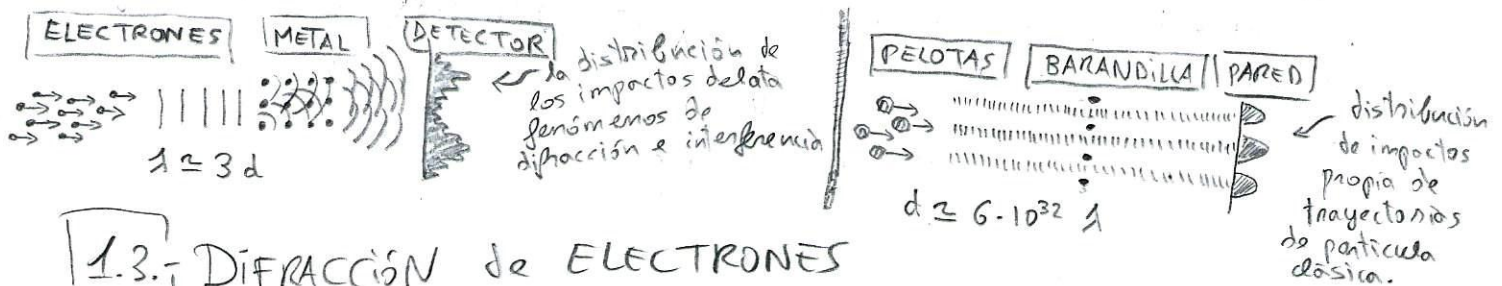 ELECTRONES METAL DETECTOR
la distribución de
los impactos delata
fenómenos de
difracción e interferencia
λ ≃ 3 d
PELOTAS BARANDILLA PARED
distribución
de impactos
propia de
trayectorias
de partícula
clásica.
d ≃ 6·10³² λ
1.3.- DIFRACCIÓN de ELECTRONES